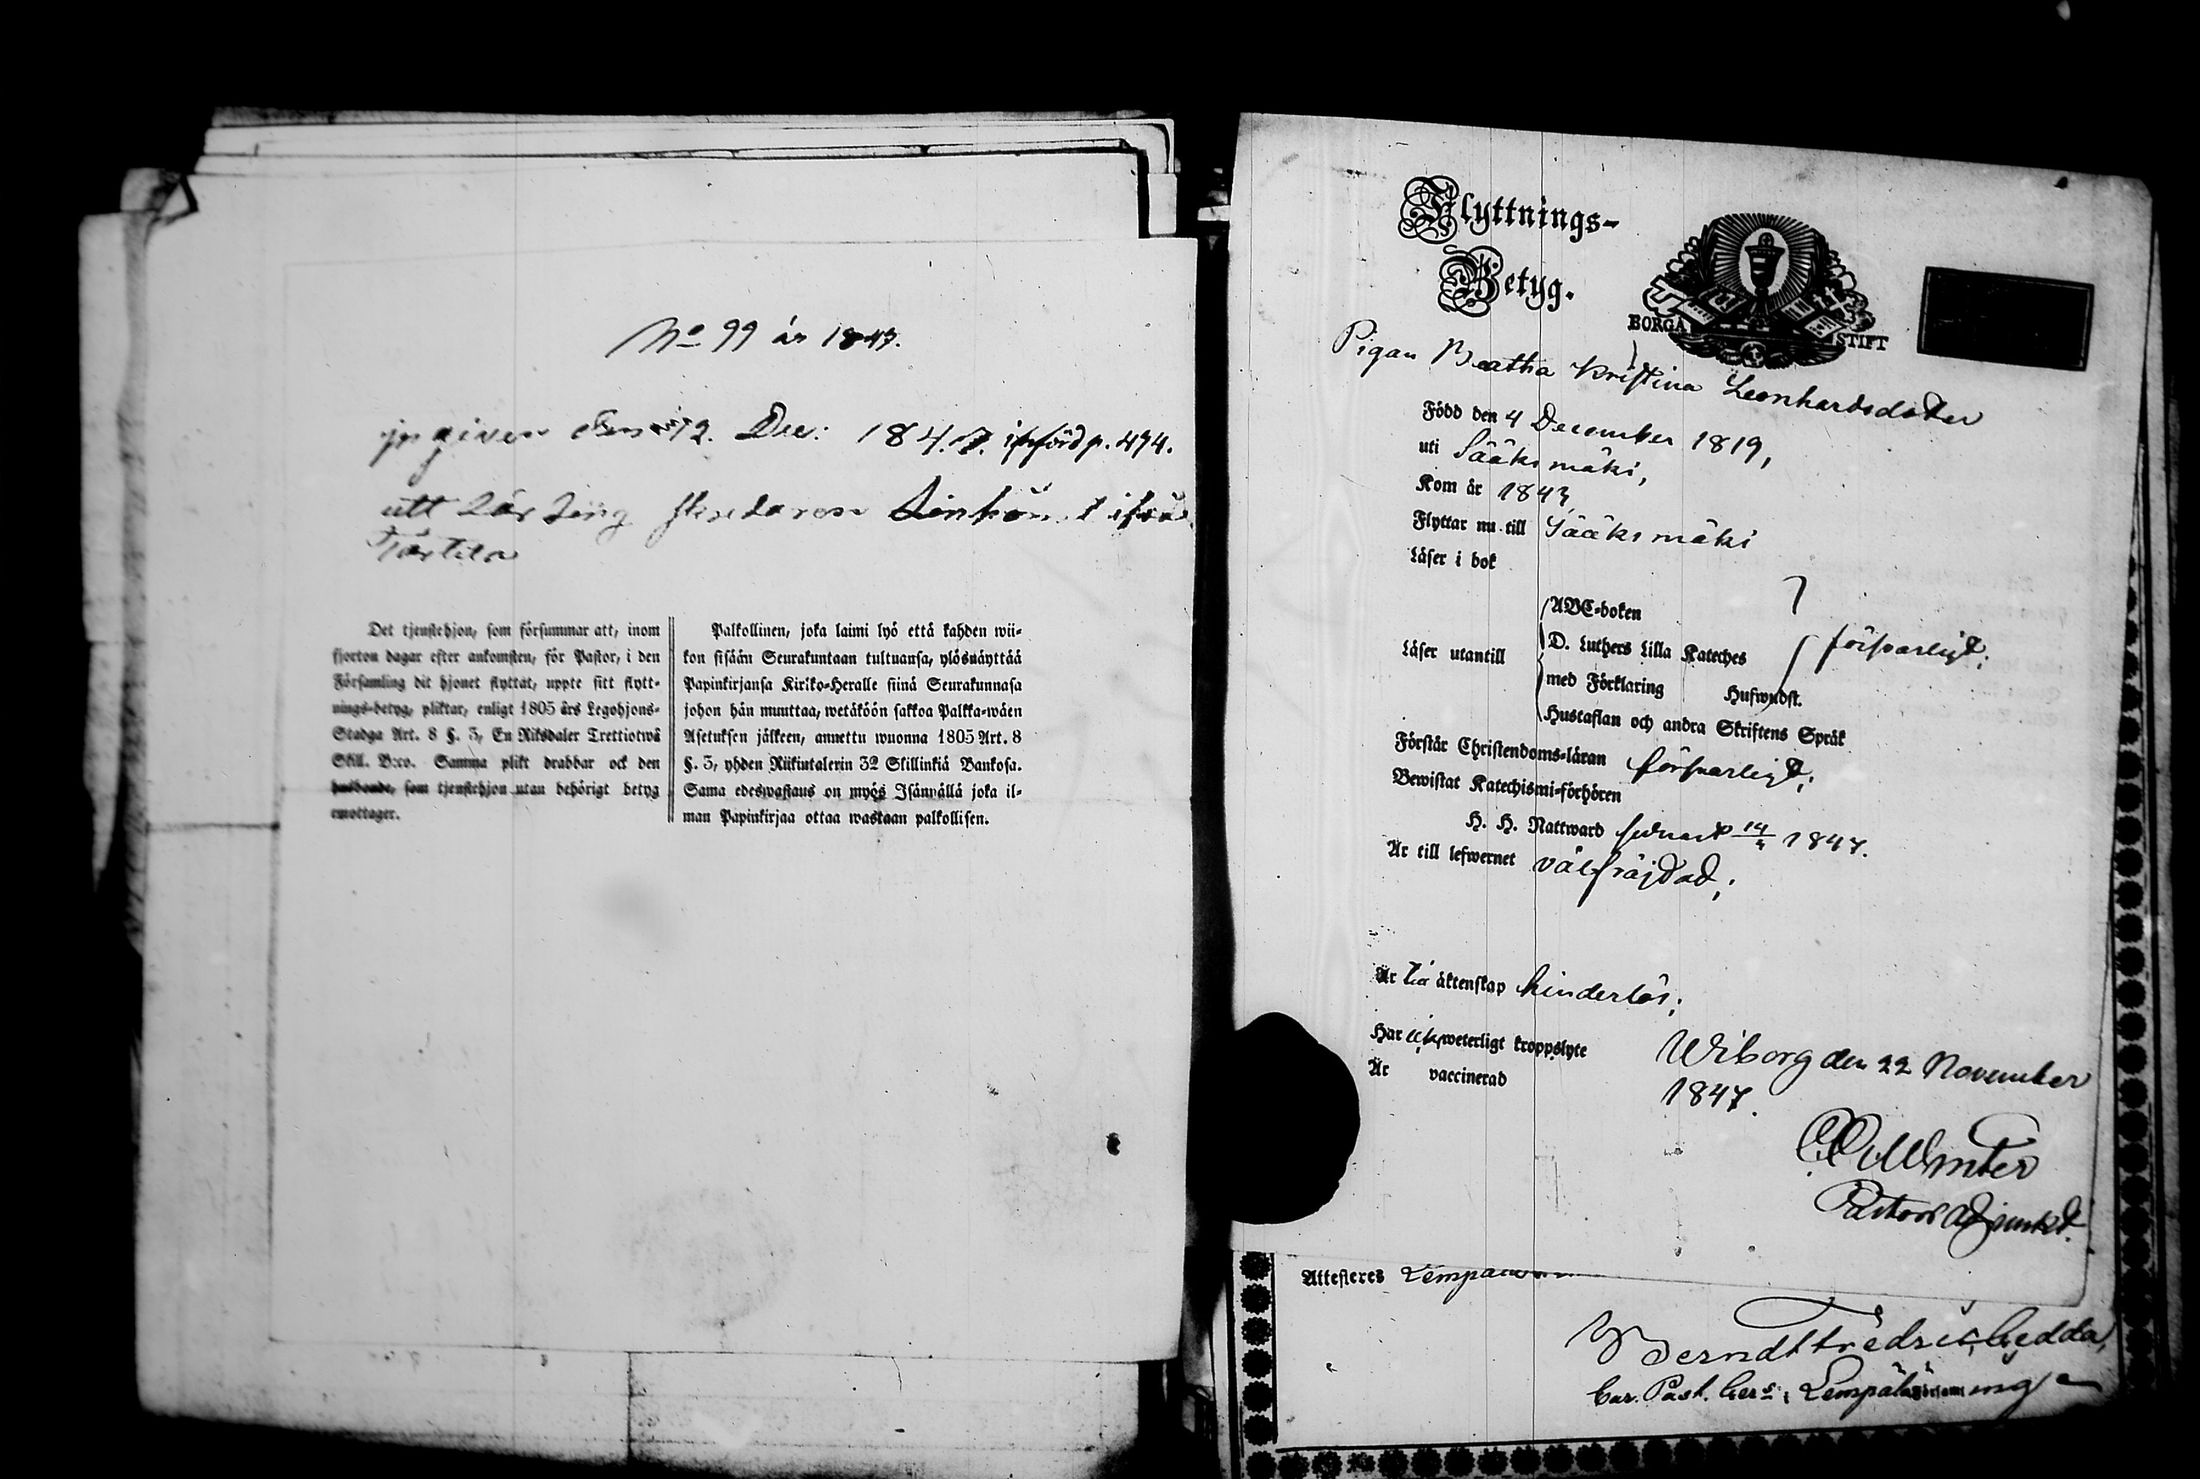 No 99 år 1847.
ingiven den 12. Dec: 1847. införd p. 474.
Det tjenstehjon, som försummar att, inom
fjorton dagar efter ankomsten, för Pastor, i den
Församling dit hjonet flyttat, uppte sitt flytt-
nings-betyg, pliktar, enligt 1805 års Legohjons-
Stadga Art. 8 §. 3, En Riksdaler Trettiotwå
Skill. B:co. Samma plikt drabbar ock den
husbonde, som tjenstehjon utan behörigt betyg
emottager.
Palkollinen, joka laimi lyö että kahden wii-
kon sisään Seurakuntaan tultuansa, ylösnäyttää
Papinkirjansa Kirkko-Heralle siinä Seurakunnasa
johon hän muuttaa, wetäköön sakkoa Palkka-wäen
Asetuksen jälkeen, annettu wuonna 1805 Art. 8
§. 3, yhden Riikintalerin 32 Skillinkiä Bankosa.
Sama edeswastaus on myös Isännällä joka il-
man Papinkirjaa ottaa wastaan palkollisen.
Flyttnings-
Betyg.
BORGÅ STIFT
Pigan Beatha Kristina Leonhardsdotter
Född den 4 December 1819,
uti Sääksmäki,
Kom år 1843
Flyttar nu till Sääksmäki
Läser i bok
Läser utantill
ABC-boken
D. Luthers Lilla Kateches
med Förklaring Hufwudst.
Hustaflan och andra Skriftens Språk
försvarligt;
Förstår Christendoms-läran försvarligt;
Bewistat Katechismi-förhören
H. H. Nattward senast 14 1847.
Är till lefwernet välfräjdad;
Är till äktenskap hinderlös;
Har ej weterligt kroppslyte
Är vaccinerad
Wiborg den 22 November
1847.
Winter
Pastors Adjunkt.
Attesteres
Berndt Fredric Gedda,
Past. i Lempälä församling